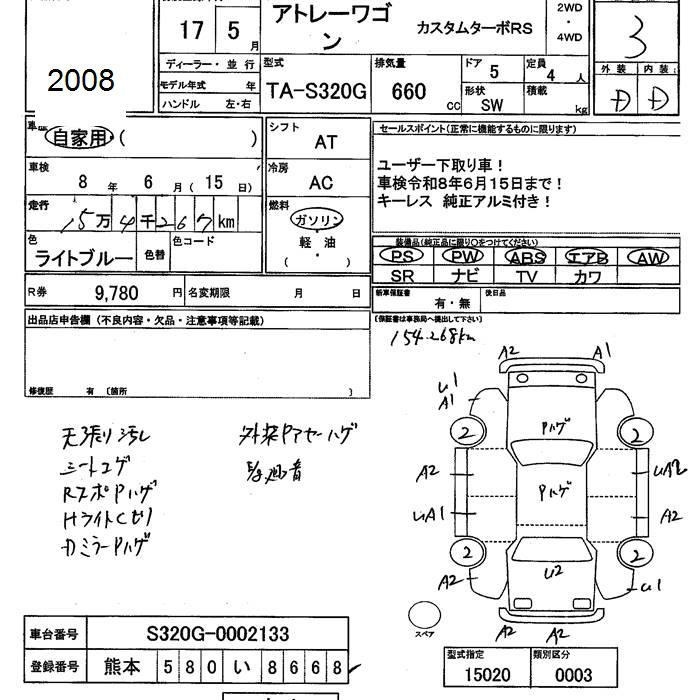 17 5月
アトレーワゴン
カスタムターボRS
2WD
・
4WD
3
2008
ディーラー・並行
モデル年式 年
ハンドル 左・右
型式
TA-S320G
排気量
660 cc
ドア
5
定員
4 人
形状
SW
積載
kg
外装 内装
D D
自家用 ( )
車検
8年 6月(15日)
走行
15万4千267km
色
ライトブルー
色替
色コード
シフト
AT
冷房
AC
燃料
ガソリン
・
軽油
( )
セールスポイント(正常に機能するものに限ります)
ユーザー下取り車!
車検令和8年6月15日まで!
キーレス 純正アルミ付き!
装備品(純正品に限り○をつけてください)
PS PW ABS エアB AW
SR ナビ TV カワ
R券 9,780 円 名変期限 月 日
新車保証書 有・無
後日品
(保証書は事務局へ提出して下さい)
出品店申告欄 (不良内容・欠品・注意事項等記載)
修復歴 有 (箇所 )
154.268km
A2 A1
U1
A1
2 2
Pハゲ
A2
Pハゲ
UA1
A2
2 2
A2
U2
U1
A2 A2
スペア
天張り汚レ
シートコゲ
RスポPハゲ
HライトCゼリ
DミラーPハゲ
外装Pアセーハゲ
車台番号 S320G-0002133
登録番号 熊本 580 い 8668
型式指定 類別区分
15020 0003